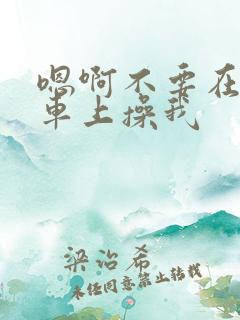 嗯啊不要在
车上操我
梁治希
未经同意禁止转载